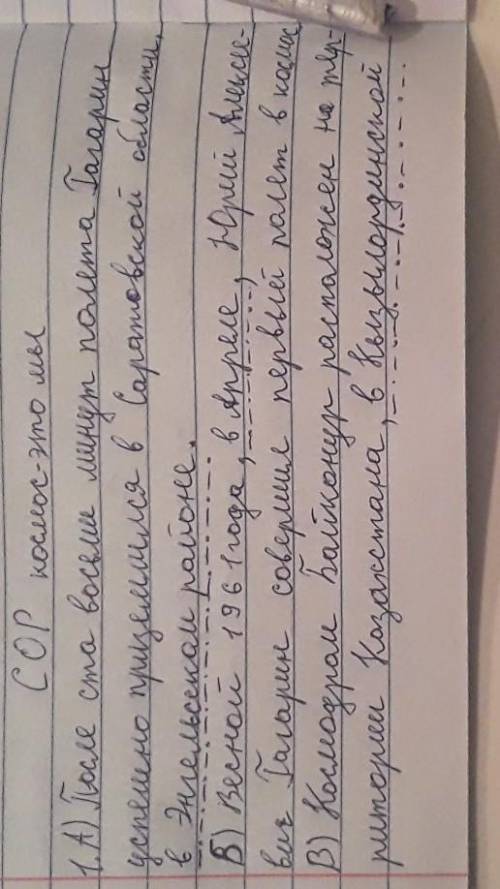 СОР космос-это мы
1. А) После ста восьми минут полета Гагарин
успешно приземлился в Саратовской области,
в Энгельсском районе.
Б) Весной 1961 года, в апреле, Юрий Алексее-
вич Гагарин совершил первый полет в космос
В) Космодром Байконур расположен на тер-
ритории Казахстана, в Кызылординской